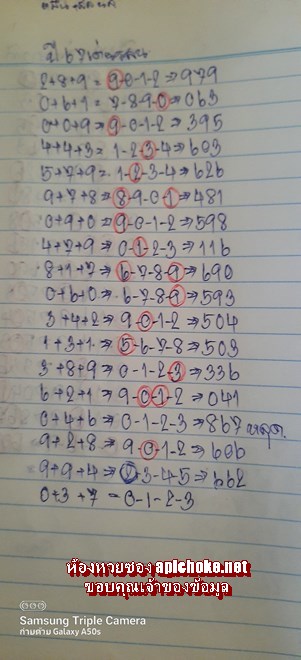 2+8+9 = 9-0-1-2 ⇒ 979
0+6+1 = 7-8-9-0 ⇒ 063
0+0+9 ⇒ 9-0-1-2 ⇒ 395
4+4+3 = 1-2-3-4 ⇒ 603
5+7+9 = 1-2-3-4 ⇒ 626
9+7+8 ⇒ 8-9-0-1 ⇒ 481
0+9+0 ⇒ 9-0-1-2 ⇒ 598
4+7+9 ⇒ 0-1-2-3 ⇒ 116
8+1+7 ⇒ 6-7-8-9 ⇒ 690
0+6+0 ⇒ 6-7-8-9 ⇒ 593
3+4+2 ⇒ 9-0-1-2 ⇒ 504
1+3+1 ⇒ 5-6-7-8 ⇒ 503
3+8+9 ⇒ 0-1-2-3 ⇒ 336
6+2+1 ⇒ 9-0-1-2 ⇒ 041
0+4+6 ⇒ 0-1-2-3 ⇒ 867 หลุด
9+2+8 ⇒ 9-0-1-2 ⇒ 606
9+9+4 ⇒ 2-3-4-5 ⇒ 662
0+3+7 = 0-1-2-3
ห้องหวยซอง apichoke.net
ขอบคุณเจ้าของข้อมูล
Samsung Triple Camera
ถ่ายด้วย Galaxy A50s